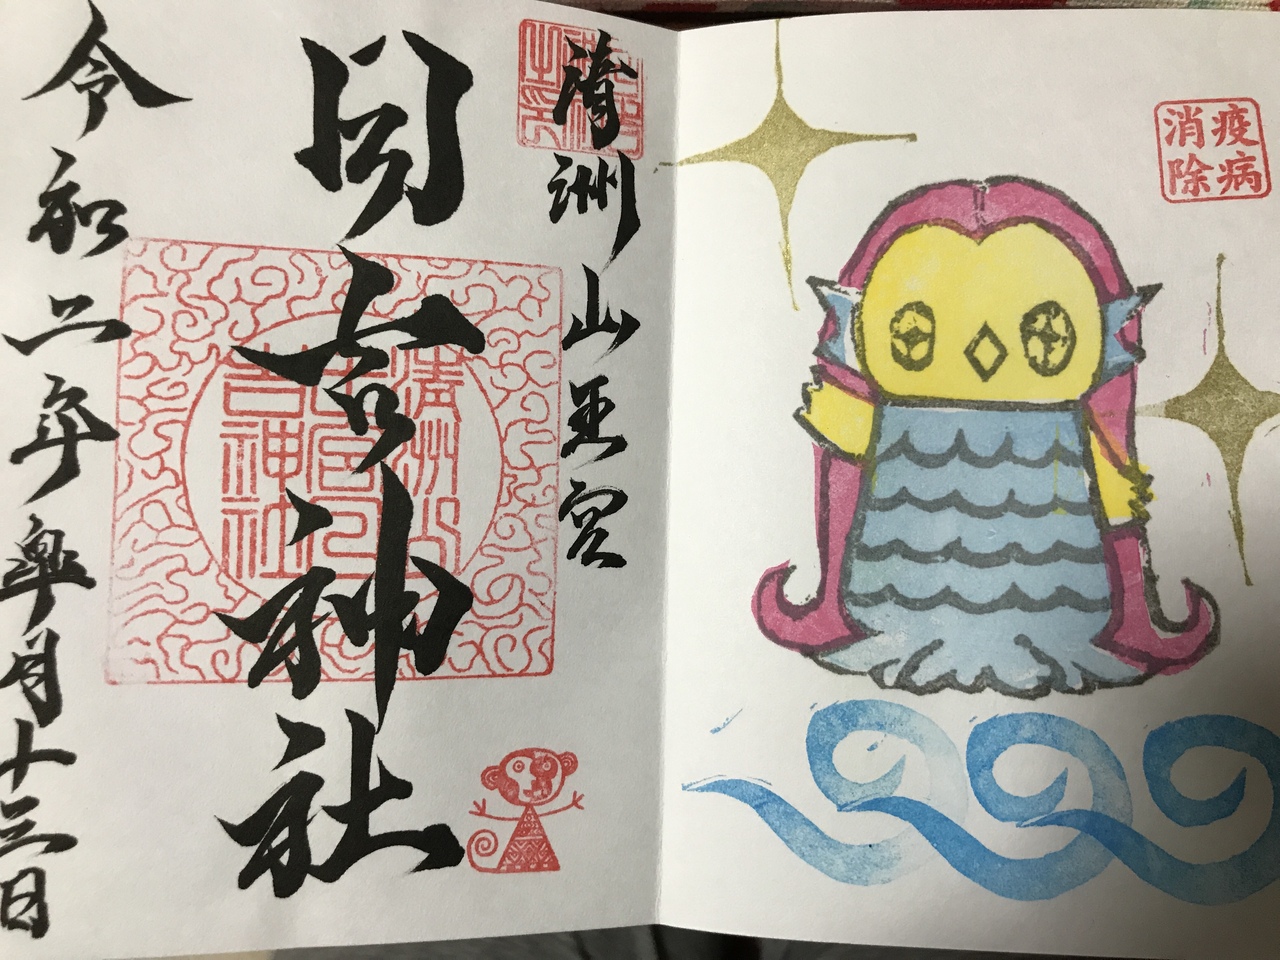 疫病
消除
清洲山王宮
日吉神社
清洲山
王宮日
吉神社
令和二年皐月十三日